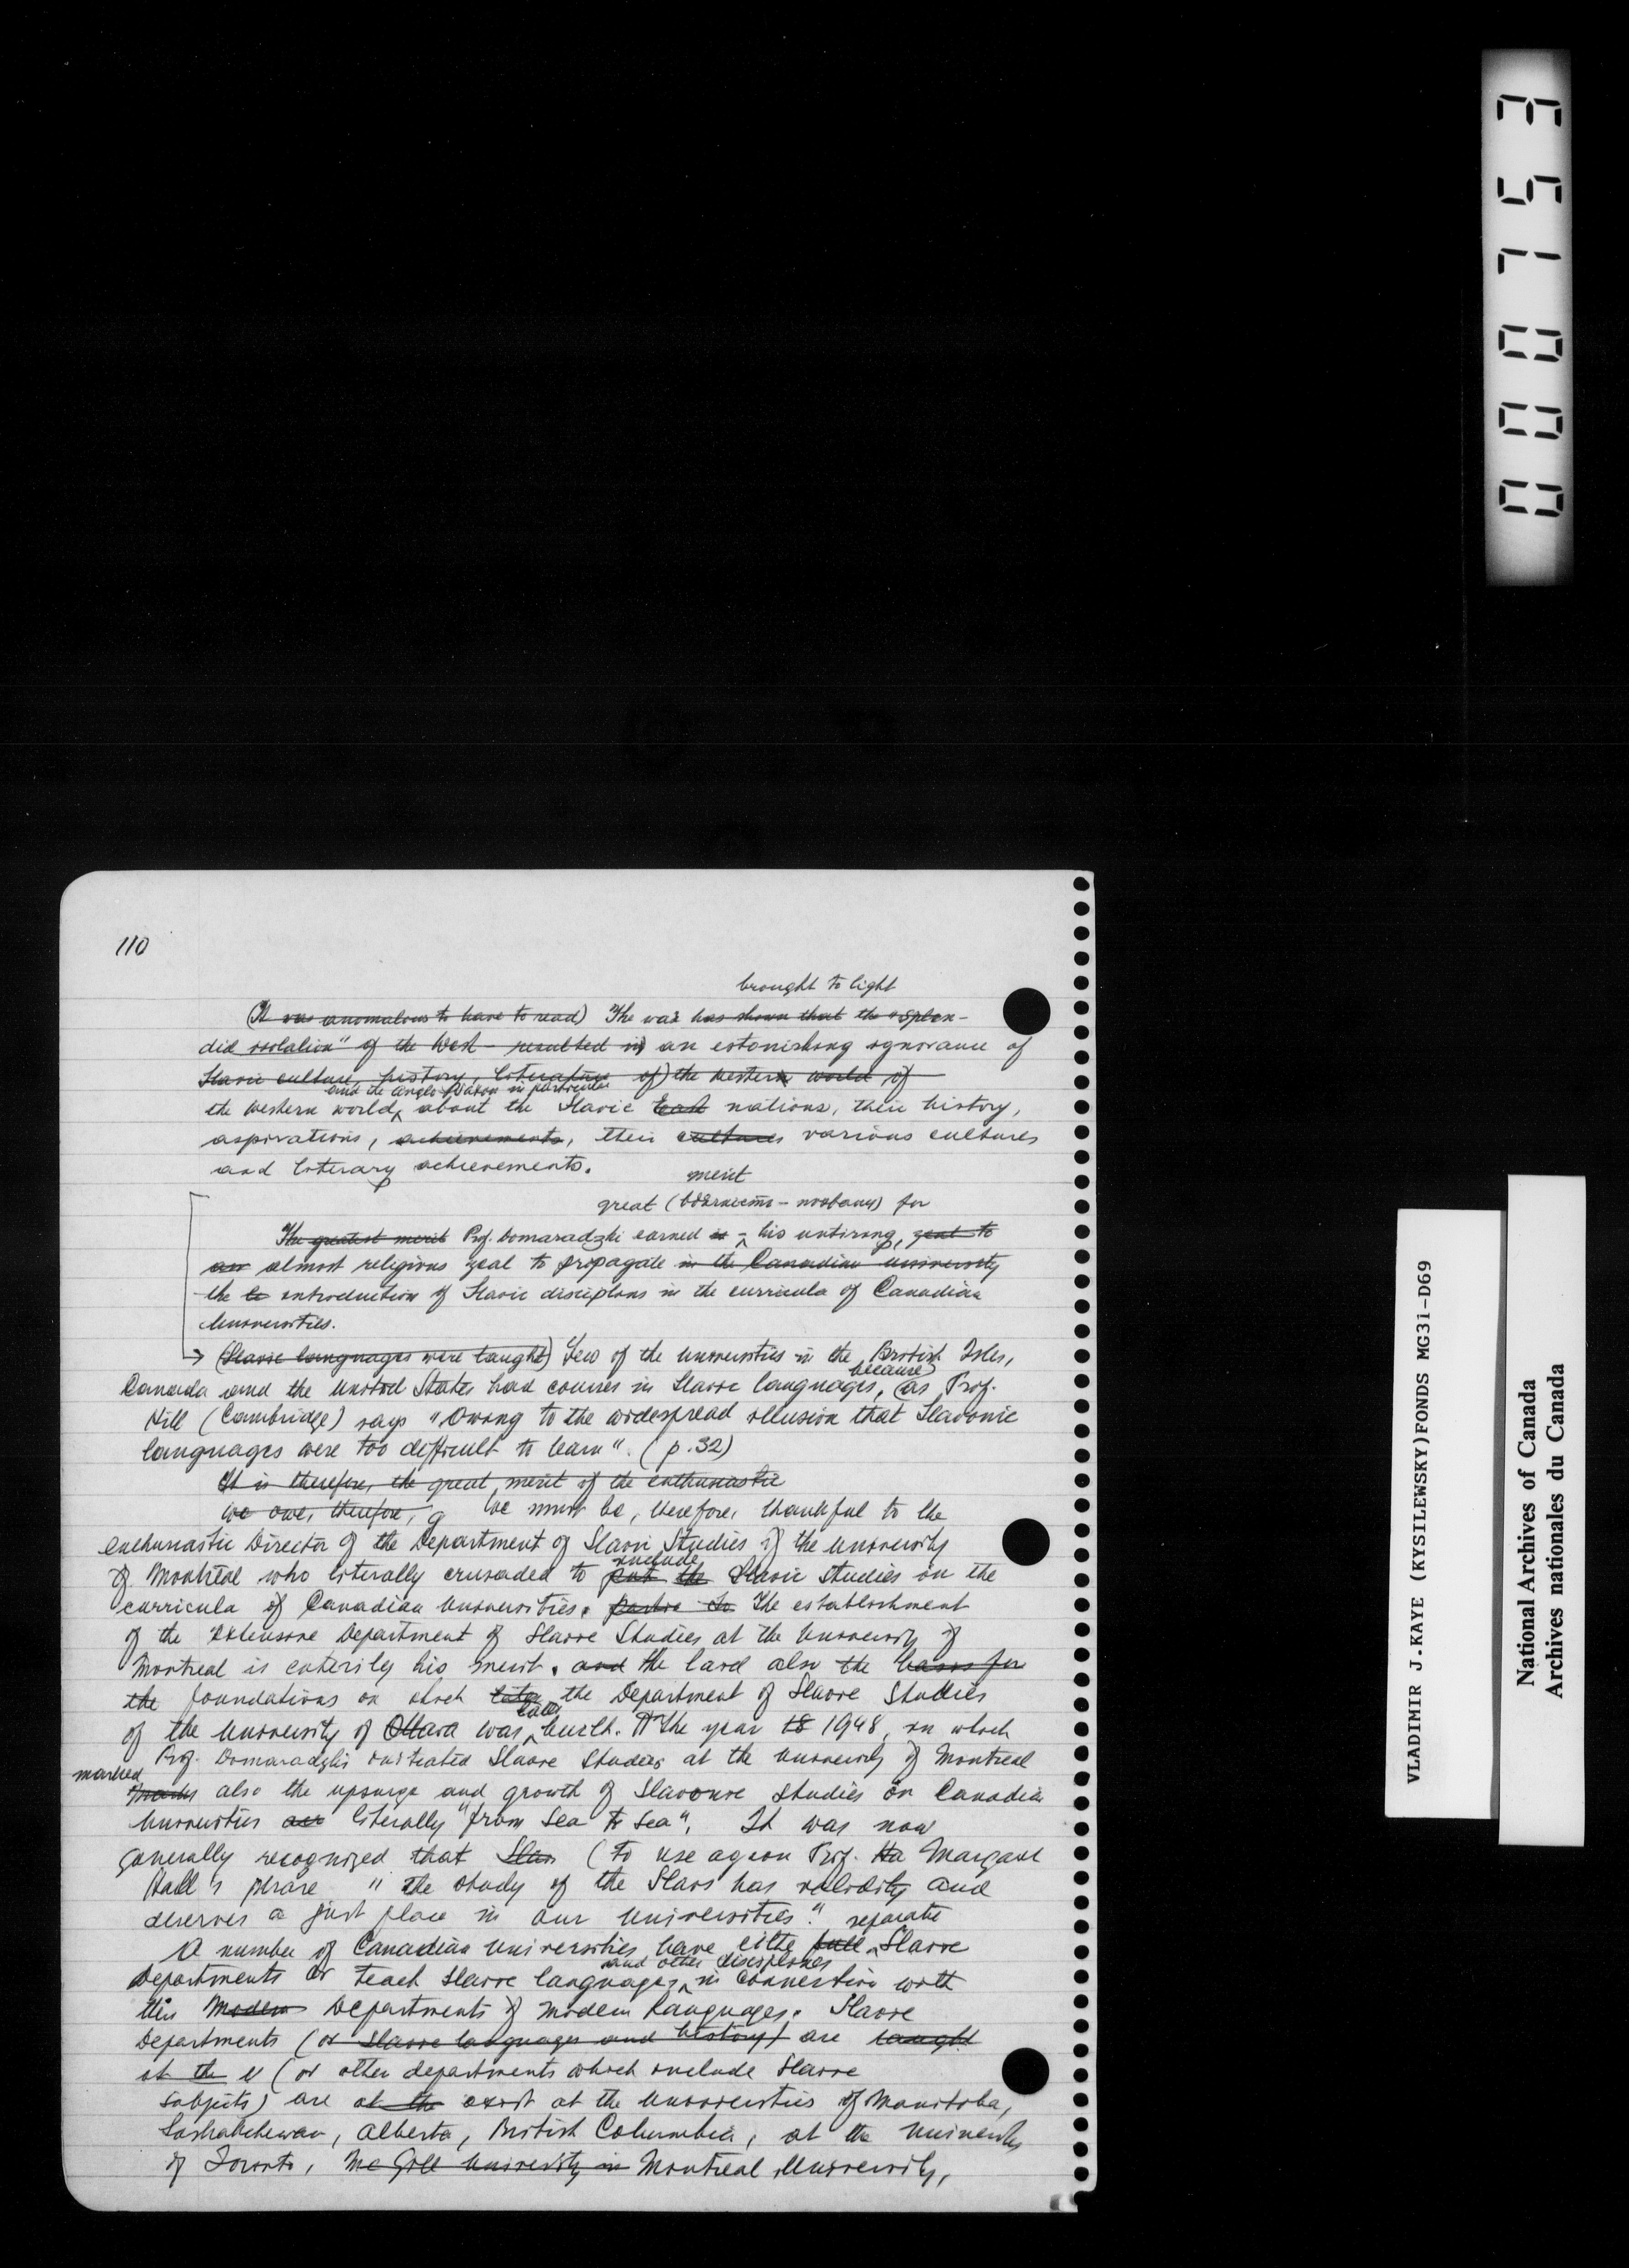 110
brought to light
(It was anomalous to have to read) The war has shown that the "splen-
did isolation" of the West - resulted in) an estonishing ignorance of
Slavic culture, history, literature of) the western world of
and the Anglo-Saxon in particular
the western world, about the Slavic East nations, their history,
aspirations, achievements, their cultures various cultures
and literary achievements.
merit
great ( ) for
The greatest merit Prof. Domaradzki earned is his untiring, zeal to
an almost religious zeal to propagate in the Canadian university
the introduction of Slavic disciplins in the curricula of Canadian
Universities.
→ (Slavic languages were taught) Few of the universities in the British Isles,
because
Canada and the United States had courses in Slavic languages, (as Prof.
Hill (Cambridge) says "Owing to the widespread illusion that Slavonic
languages were too difficult to learn". (p. 32)
It is therefore, the great merit of the enthusiastic
We owe, therefore, g We must be, therefore, thankful to the
enthusiastic Director of the Department of Slavic Studies of the University
include
of Montreal who literally crusaded to put the Slavic studies in the
curricula of Canadian Universities. The establishment
of the extensive Department of Slavic Studies at the University of
Montreal is enterily his merit. and He laid also the basis for
the foundations on which later the Department of Slavic Studies
later
of the University of Ottawa was built. The year 18 1948, in which
Prof. Domaradzki initiated Slavic Studies at the University of Montreal
marked
marks also the upsurge and growth of Slavonic studies in Canadian
Universities literally "from Sea to Sea". It was now
generally recognized that Slav (to use again Prof. Ha Margaret
Hall's phrase "the study of the Slavs has validity and
deserves a just place in our Universities."
separate
A number of Canadian Universities have eithe full Slavic
and other disciplines
Departments or teach Slavic languages in connection with
their Modern Departments of Modern Languages. Slavic
Departments (or Slavic languages and history) are taught
at the U (or other departments which include Slavic
subjects) are at the exist at the Universities of Manitoba,
Saskatchewan, Alberta, British Columbia, at the University
of Toronto, Mc Gill University in Montreal University,
000753
VLADIMIR J.KAYE (KYSILEWSKY)FONDS MG31-D69
National Archives of Canada
Archives nationales du Canada